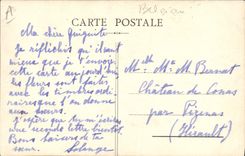 A
Belgian
CARTE POSTALE
Ma chère Guiguite
Je réfléchis qu'il vaut
mieux que je t'envoie
cette carte aujourd'hui
les fleurs sont faites
avec les timbres ordi-
naires que l'on donne
aux sœurs.
J'espère que tu m'écriras
une seconde lettre bientôt.
Bons baisers de ta
sœur. Solange
Melle M. M. Bernat
Château de Conas
par Pézenas
(Hérault)